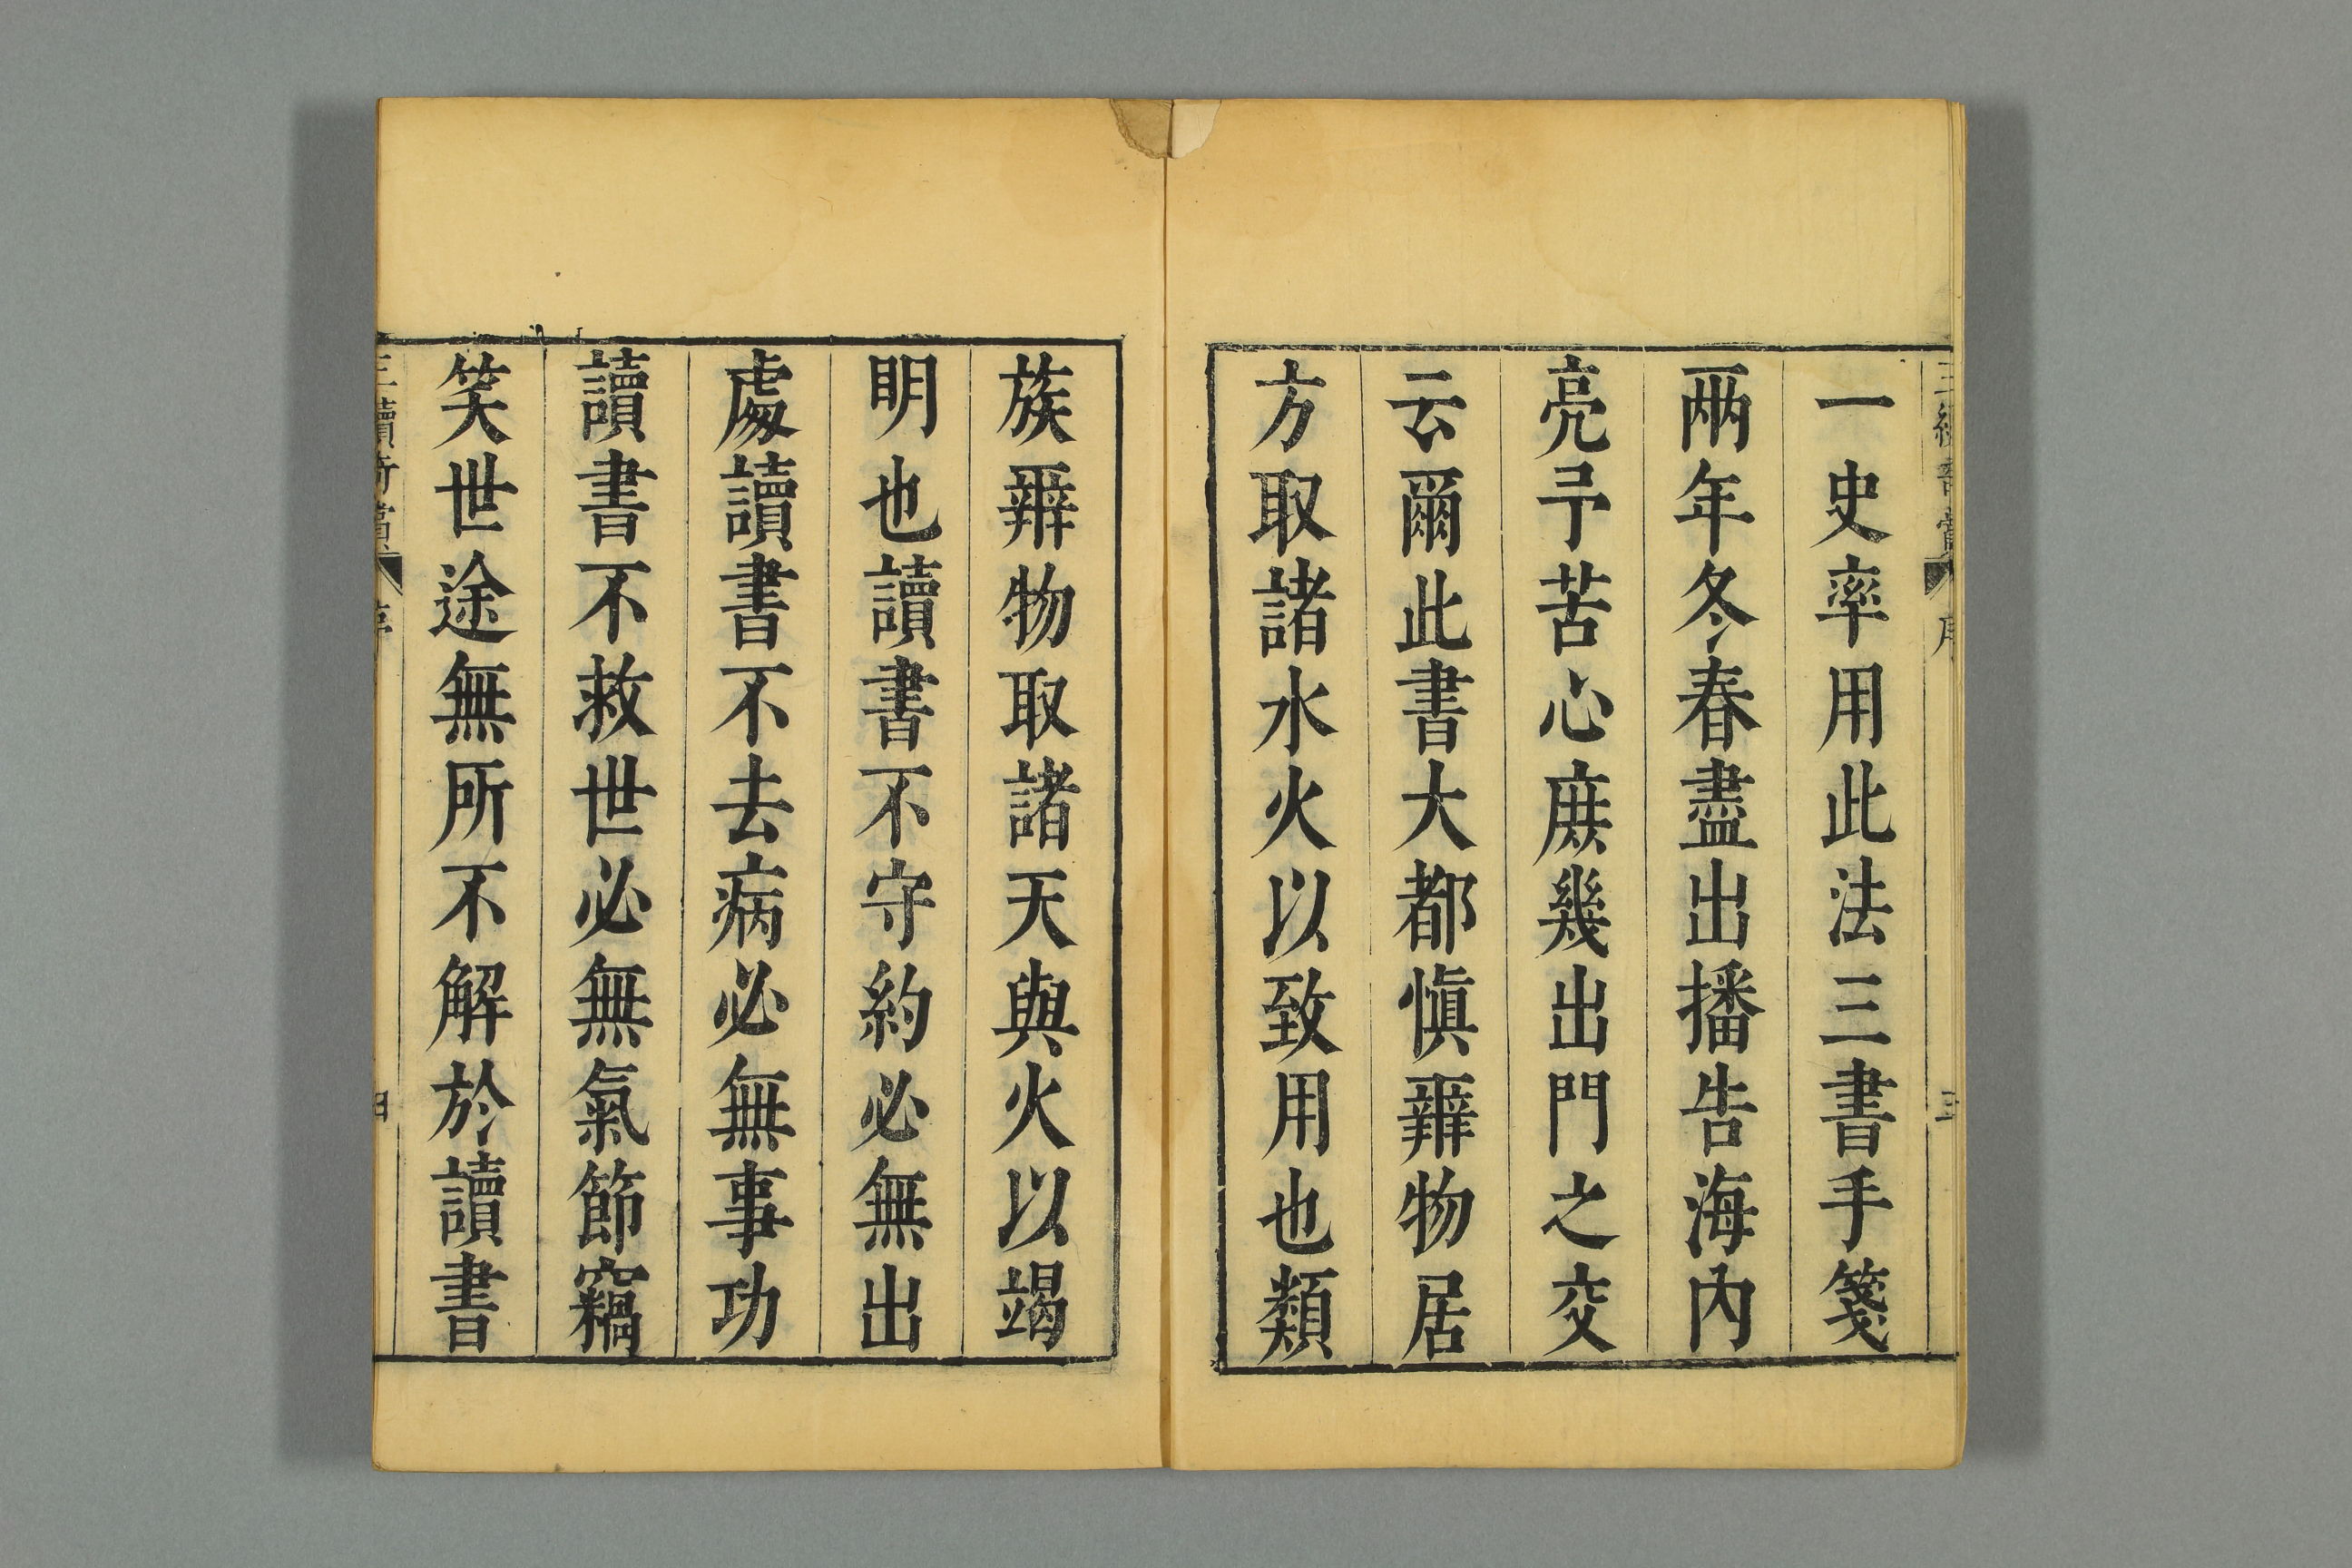 一史率用此法三書手箋
兩年冬春盡出播告海內
亮予苦心庻幾出門之交
云爾此書大都慎辨物居
方取諸水火以致用也類
族辨物取諸天與火以竭
明也讀書不守約必無出
處讀書不去病必無事功
讀書不救世必無氣節竊
笑世途無所不解於讀書
三續奇賞 序